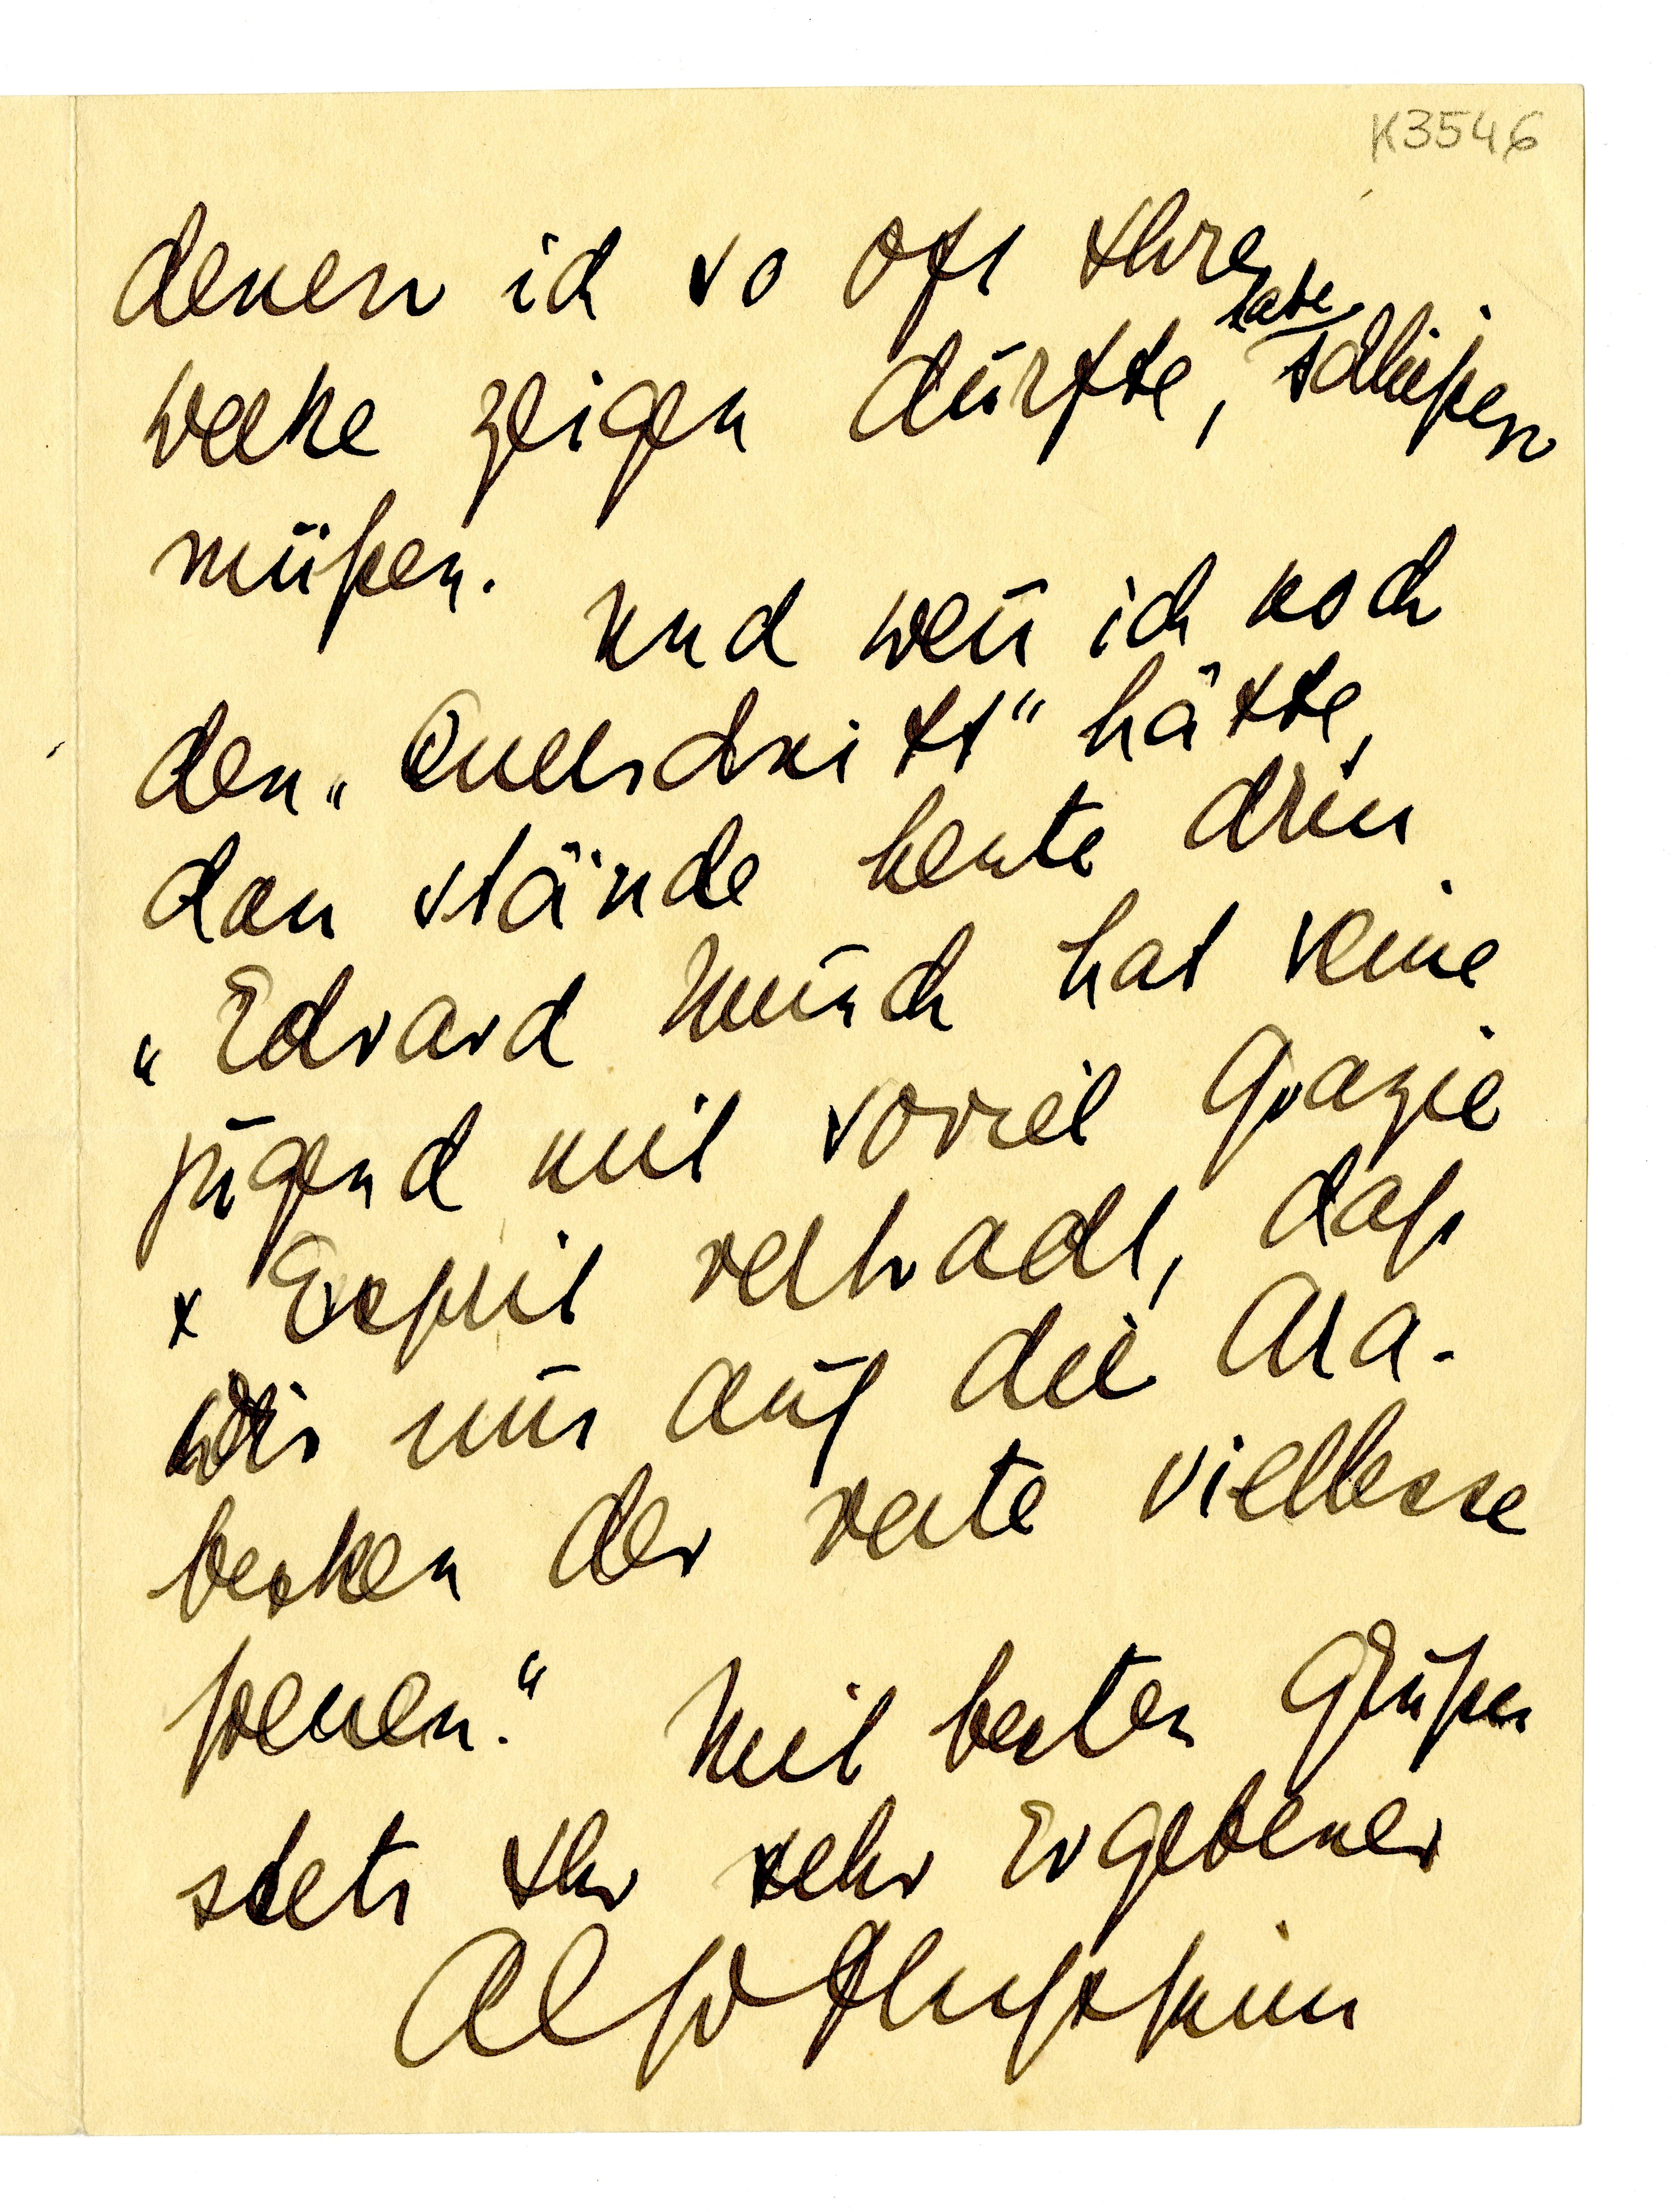 K3546
denen ich so oft Ihre
Werke zeigen durfte, habe schließen
müßen. Und wen̄ ich noch
den „Querschnitt“ hätte,
dan stände heute drin
„Edvard Munch hat seine
Jugend mit soviel Grazie
+ Esprit verbracht, daß
wir nur auf die Ara-
besken der verte viellesse
hoffen.“ Mit besten Grüßen
stets Ihr sehr Ergebener
Alfr Flechtheim